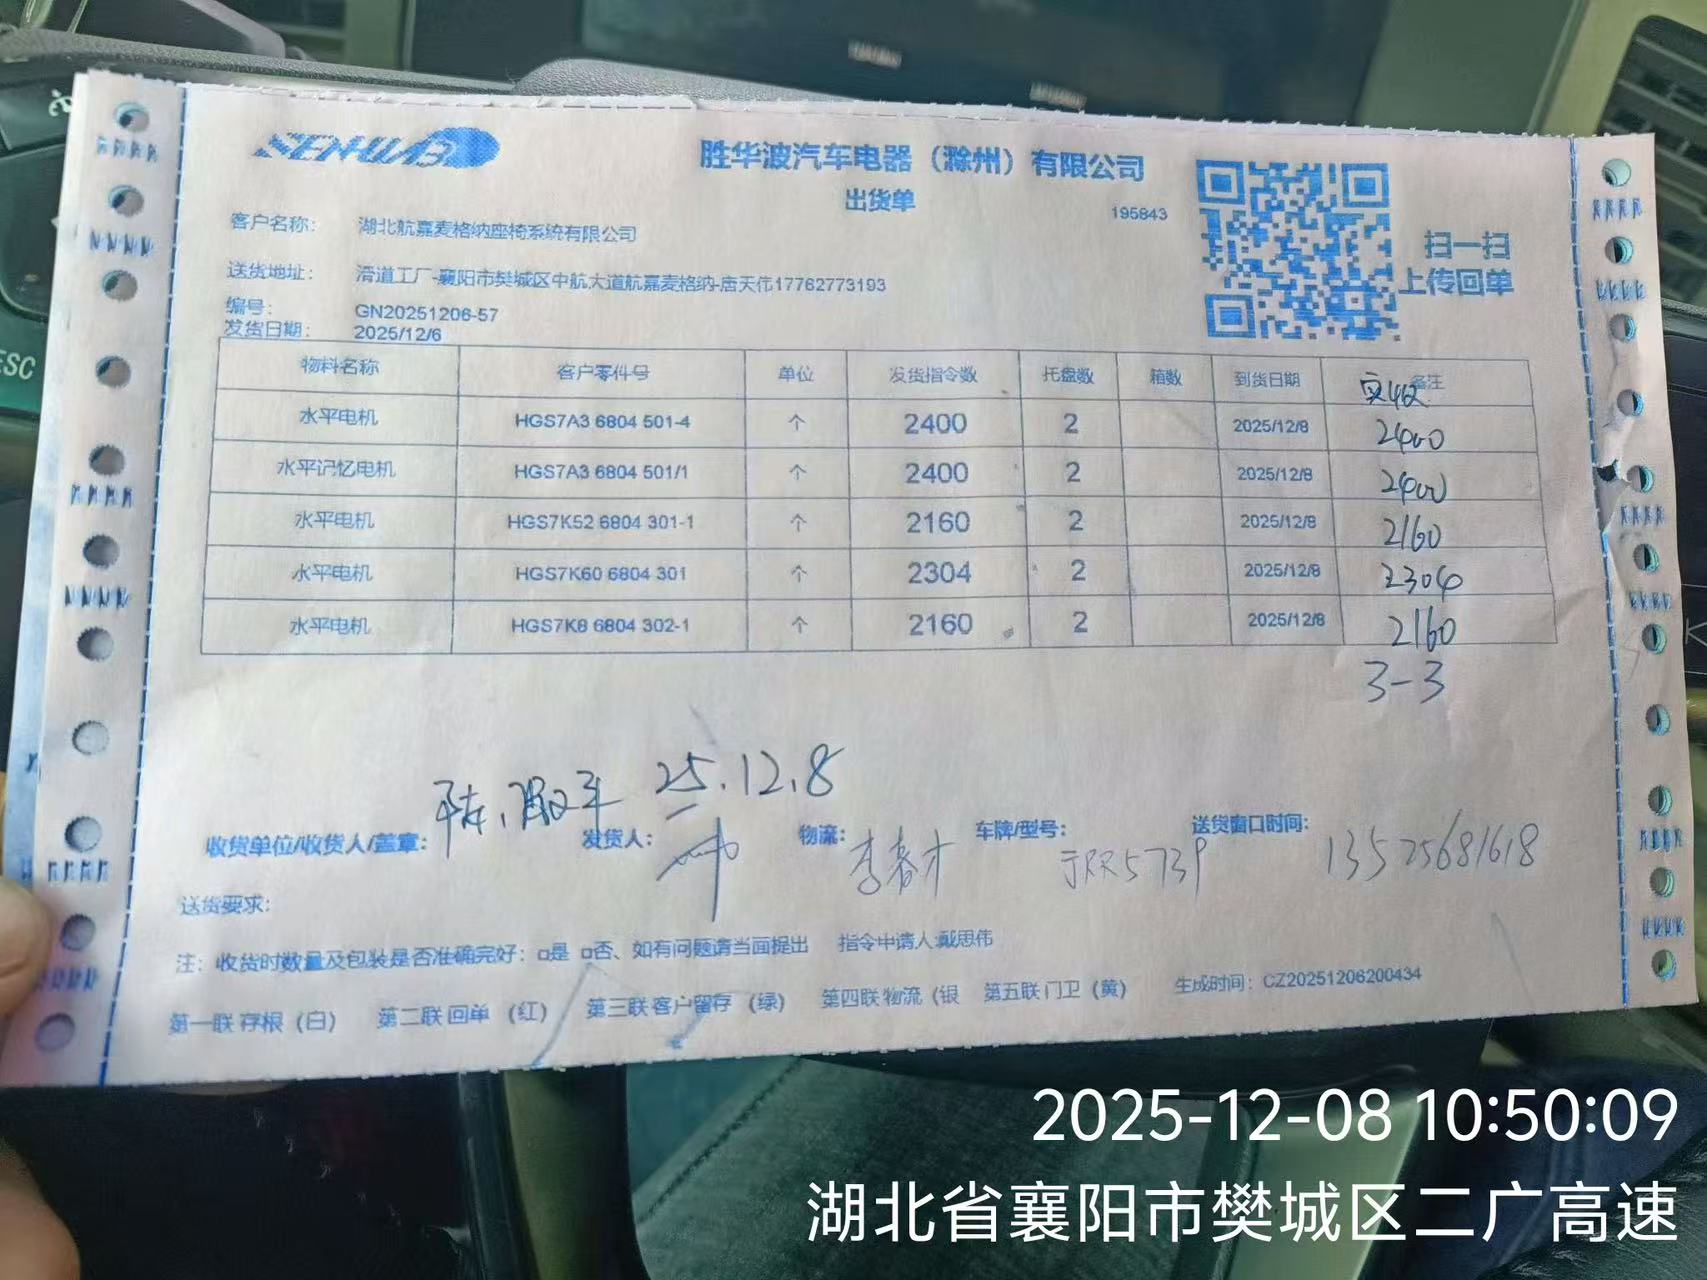 SENHUAB
胜华波汽车电器（滁州）有限公司
出货单
195843
扫一扫
上传回单
客户名称： 湖北航嘉麦格纳座椅系统有限公司
送货地址： 滑道工厂-襄阳市樊城区中航大道航嘉麦格纳-唐天伟17762773193
编号： GN20251206-57
发货日期： 2025/12/6
物料名称 客户零件号 单位 发货指令数 托盘数 箱数 到货日期 备注 实收
水平电机 HGS7A3 6804 501-4 个 2400 2 2025/12/8 2400
水平记忆电机 HGS7A3 6804 501/1 个 2400 2 2025/12/8 2400
水平电机 HGS7K52 6804 301-1 个 2160 2 2025/12/8 2160
水平电机 HGS7K60 6804 301 个 2304 2 2025/12/8 2304
水平电机 HGS7K8 6804 302-1 个 2160 2 2025/12/8 2160
3-3
25.12.8
收货单位/收货人/盖章： 发货人： 物流： 李春才 车牌/型号： 送货窗口时间： 13525681618
送货要求：
注：收货时数量及包装是否准确完好：□是 □否、如有问题请当面提出 指令申请人:戴思伟
第一联 存根（白） 第二联 回单（红） 第三联 客户留存（绿） 第四联 物流（银 第五联 门卫（黄） 生成时间：CZ20251206200434
ESC
2025-12-08 10:50:09
湖北省襄阳市樊城区二广高速